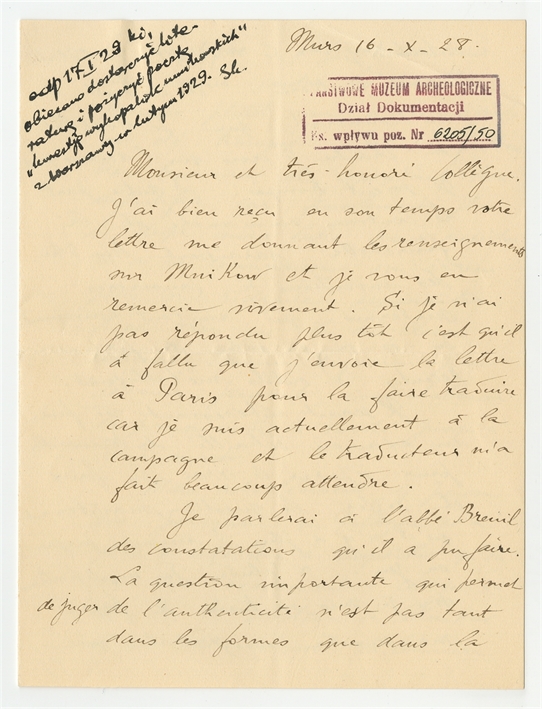 odp 17 I 29
obiecano dostarczyć lite-
raturę i pożyczyć pocztą
"kwestję wykopalisk mnikowskich"
z Warszawy w lutym 1929. Sk.
Murs 16 - X - 28.
PAŃSTWOWE MUZEUM ARCHEOLOGICZNE
Dział Dokumentacji
Ks. wpływu poz. Nr 6205/50
Monsieur et très-honoré Collègue.
J'ai bien reçu en son temps votre
lettre me donnant les renseignements
sur Mnikow et je vous en
remercie vivement. Si je n'ai
pas répondu plus tôt c'est qu'il
a fallu que j'envoie la lettre
à Paris pour la faire traduire
car je suis actuellement à la
campagne et le traducteur m'a
fait beaucoup attendre.
Je parlerai à l'abbé Breuil
des constatations qu'il a pu faire.
La question importante qui permet
de juger de l'authenticité n'est pas tant
dans les formes que dans la